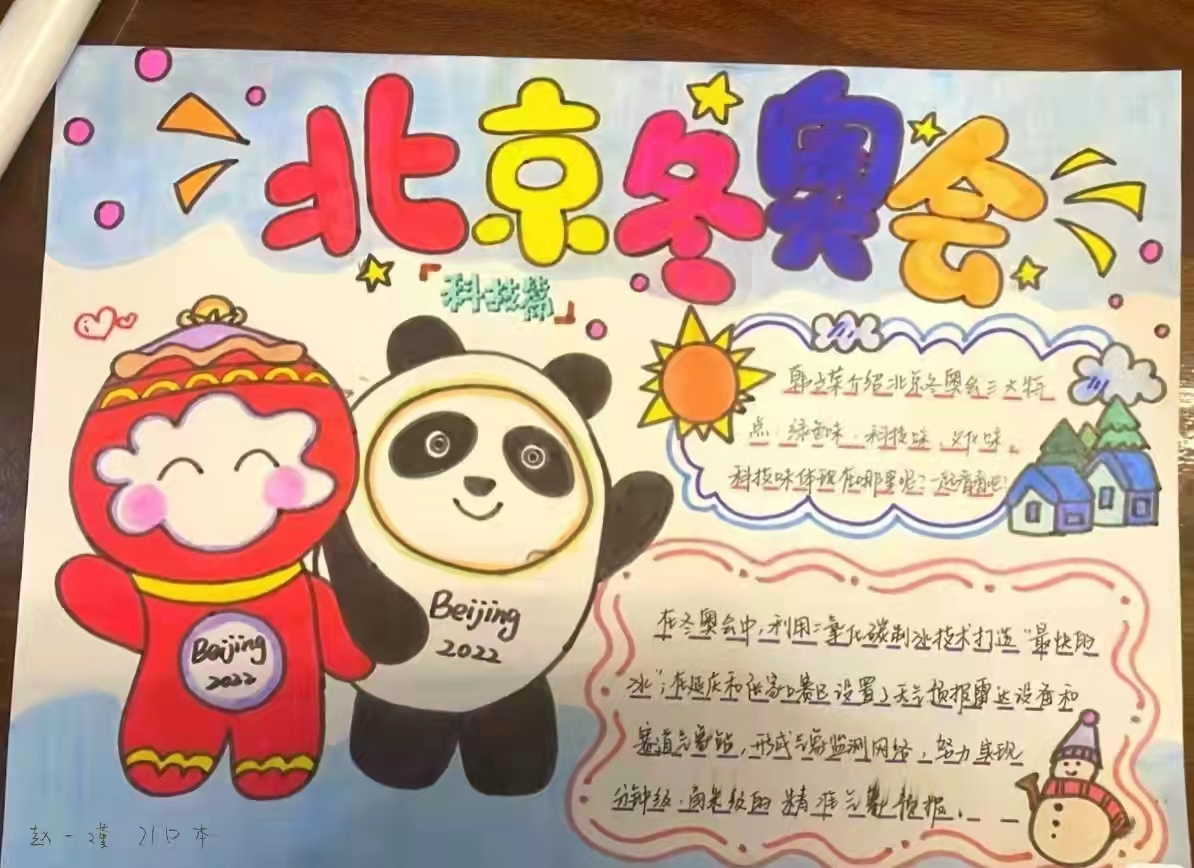 北京冬奥会
『科技篇』
韩立荣介绍北京冬奥会三大特
点：绿色味、科技味、文化味。
科技味体现在哪里呢？一起看看吧！
Beijing
2022
Beijing
2022
在冬奥会中，利用二氧化碳制冰技术打造“最快的
冰”；在延庆和张家口赛区设置了天气预报雷达设备和
赛道气象站，形成气象监测网络，努力实现
分钟级、百米级的精准气象预报。
赵一瑾